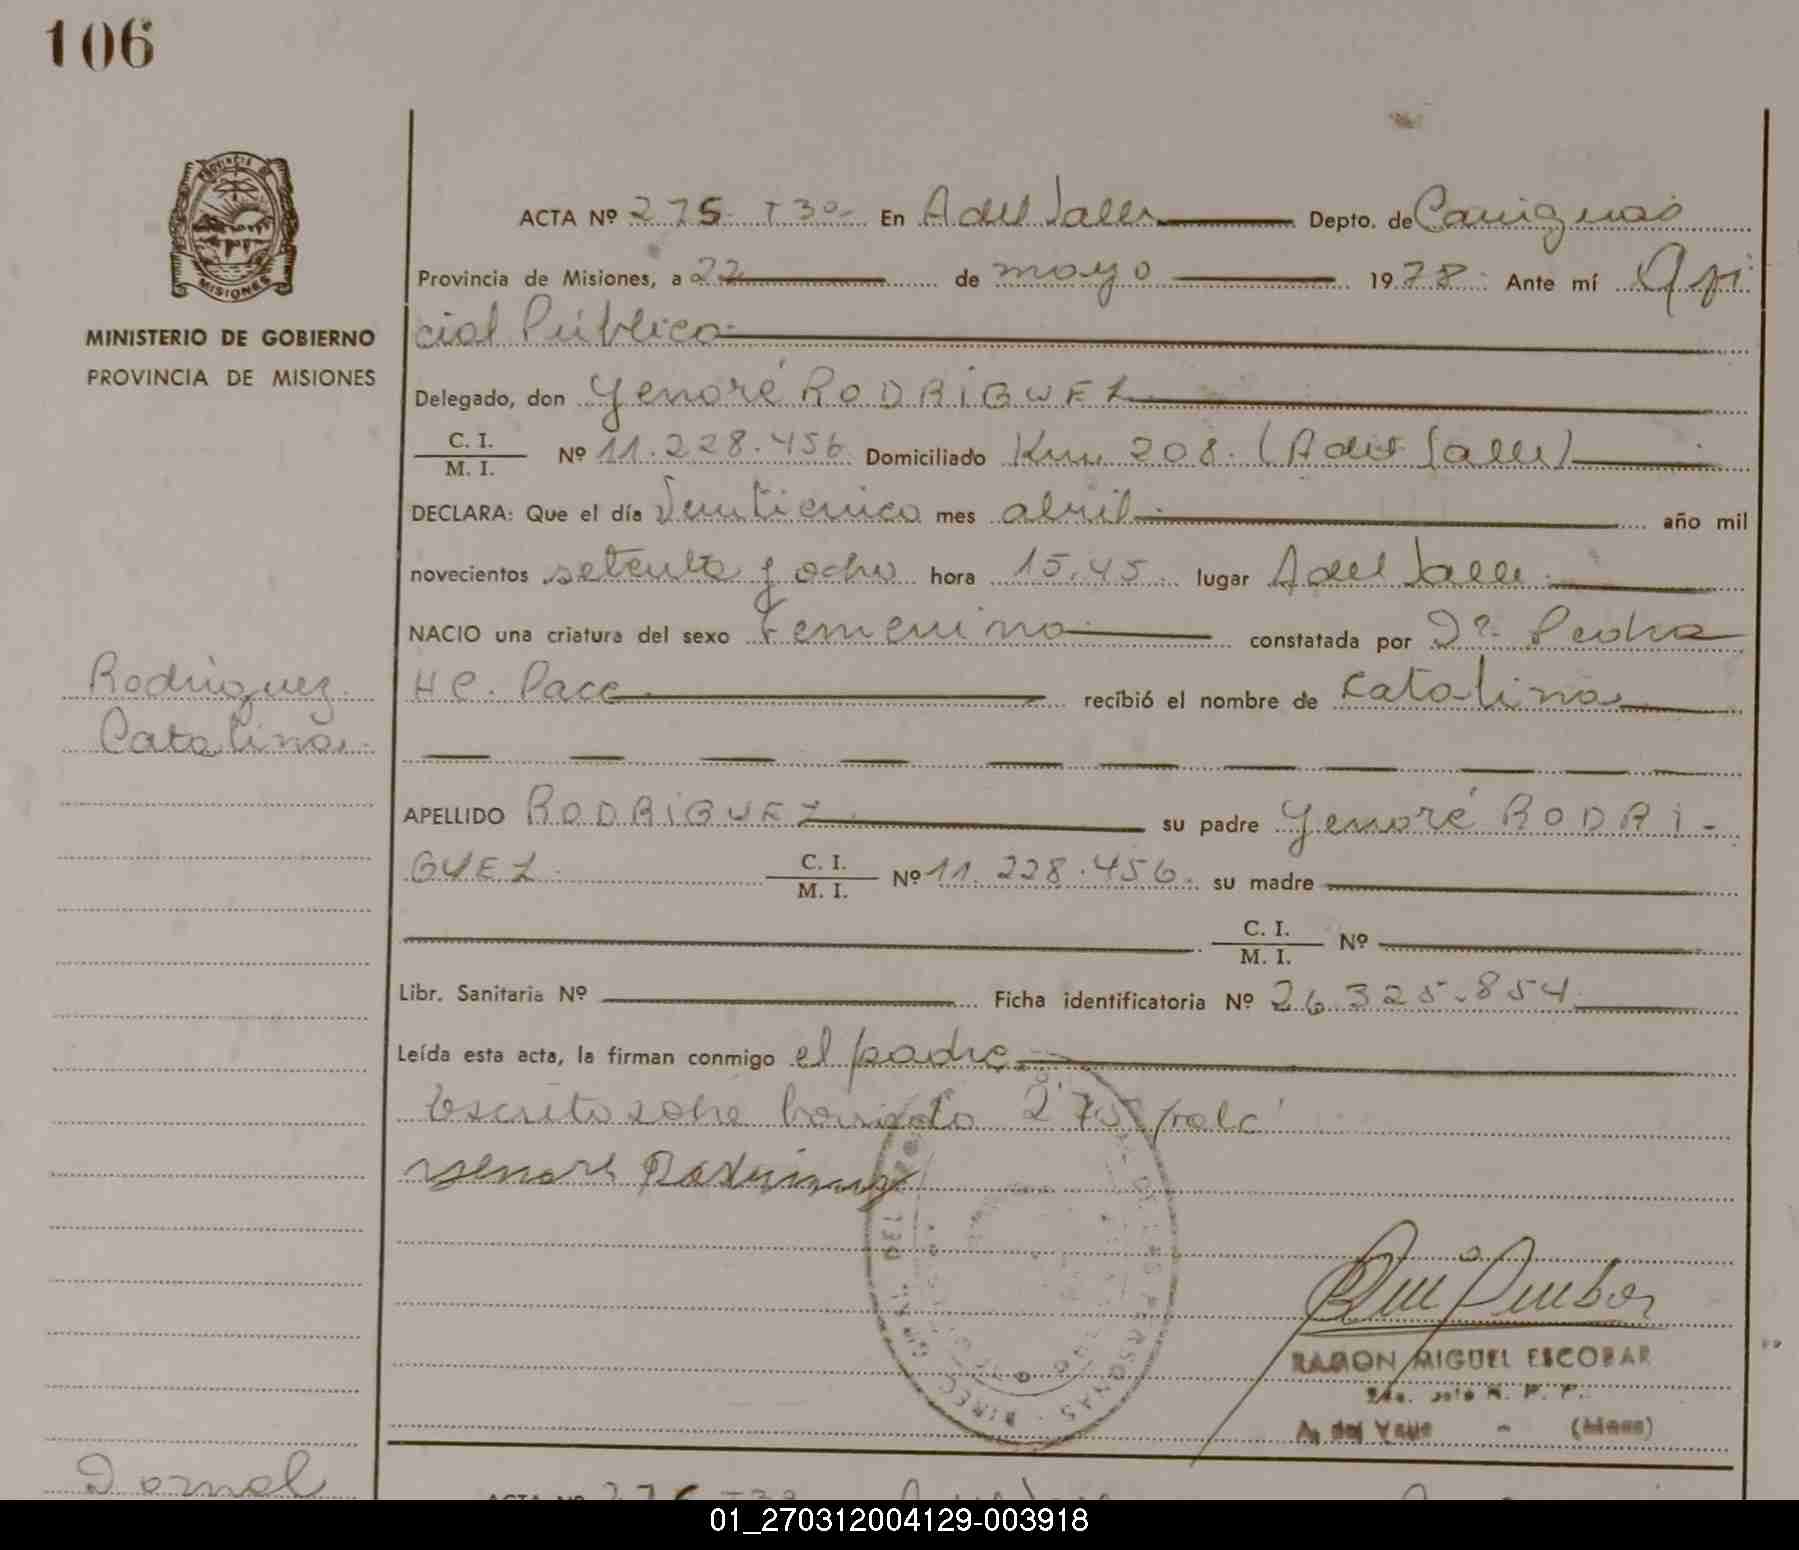 106
MINISTERIO DE GOBIERNO
PROVINCIA DE MISIONES
Rodriguez
Catalina
ACTA Nº 275 - T 3º - En A del Valle Depto. de Cainguás
Provincia de Misiones, a 22 de mayo 1978 Ante mí Ofi
cial Público
Delegado, don Yenoré RODRIGUEZ
C. I.
M. I. Nº 11.228.456 Domiciliado Km 208. (A del Valle)
DECLARA: Que el día Veinticinco mes abril año mil
novecientos setenta y ocho hora 15.45 lugar A del Valle
NACIO una criatura del sexo Femenino constatada por Dª. Pedra
HC. Pacc recibió el nombre de Catalina
APELLIDO RODRIGUEZ su padre Yenoré RODRI-
GUEZ C. I.
M. I. Nº 11.228.456 su madre
C. I.
M. I. Nº
Libr. Sanitaria Nº Ficha identificatoria Nº 26.325.854
Leída esta acta, la firman conmigo el padre
Escrito sobre borrado 275 vale
Yenore Rodriguez
RAMON MIGUEL ESCOBAR
A. del Valle - (Mnes)
Dornel
ACTA Nº 276 T3º
01_270312004129-003918